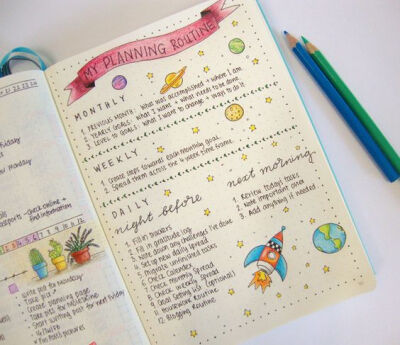 MY PLANNING ROUTINE
MONTHLY
1. PREVIOUS MONTH: What was accomplished + where I am
2. YEARLY GOALS: What I want + what needs to be done.
3. LEVEL 10 GOALS: What I want to change + ways to do it
WEEKLY
1. Create steps towards each monthly goal.
2. Spend them across the 4 week time frame.
DAILY
night before
1. Fill in trackers
2. Fill in gratitude log
3. Note down any challenges I've done
4. Set up new daily spread
5. Migrate unfinished tasks
6. Check Calendex
7. Check monthly spread
8. Check weekly spread
9. Goal Setting List (optional)
11. Homework Routine
12. Blogging Routine
next morning
1. Review today's tasks
2. Note important over
3. Add anything if needed
Friday
or Monday
check online +
find information
write psd for monday
Take pic
Create planning page
Take pics for
Start writing post for next Friday
Edit pictures